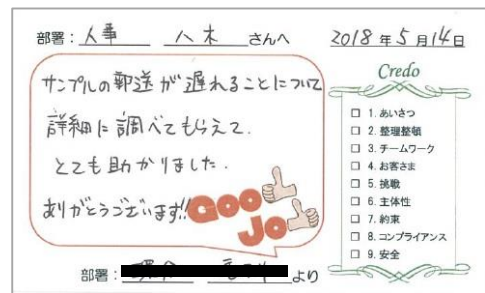 部署：人事 八木 さんへ
2018年5月14日
サンプルの郵送が遅れることについて
詳細に調べてもらえて、
とても助かりました。
ありがとうございます!!
GOO
JO
Credo
□ 1. あいさつ
□ 2. 整理整頓
□ 3. チームワーク
□ 4. お客さま
□ 5. 挑戦
□ 6. 主体性
□ 7. 約束
□ 8. コンプライアンス
□ 9. 安全
部署：
より